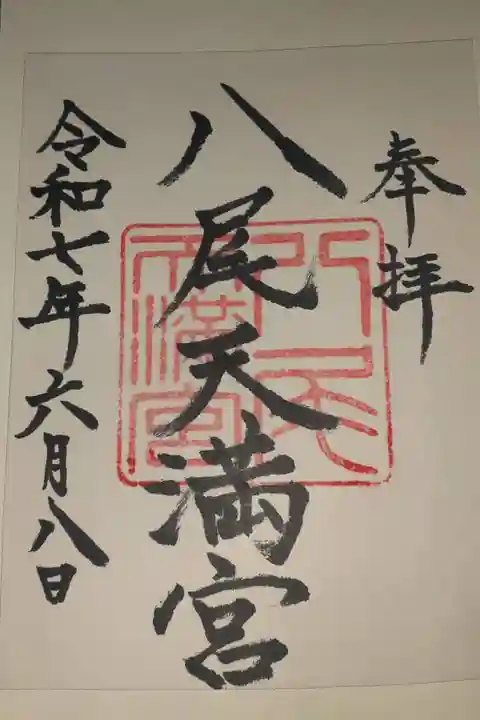 奉拝
八尾天満宮
八尾天満宮
令和七年六月八日